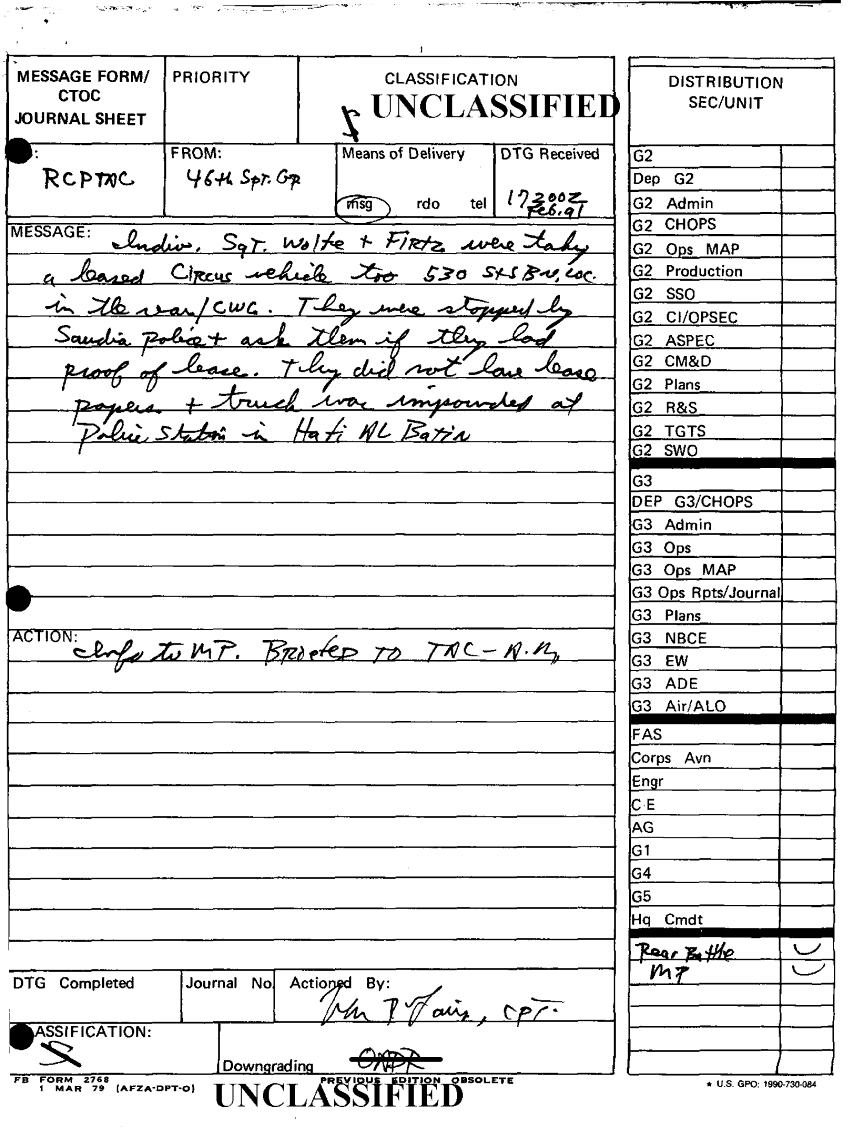 MESSAGE FORM/
CTOC
JOURNAL SHEET
PRIORITY
CLASSIFICATION
UNCLASSIFIED
RCPTAC
FROM:
46th Spt. Gp
Means of Delivery
msg rdo tel
DTG Received
172002
Feb. 91
MESSAGE:
Indiv. Sgt. Wolfe + Firtz were taky
a leased Circus vehicle too 530 S+S Bn, loc.
in the rear/CWG. They were stopped by
Saudia police + ask them if they had
proof of lease. They did not have lease
papers + truck was impounded at
Police Station in Hafi AL Batin
ACTION:
Info to MP. Briefed TO TAC-
DTG Completed
Journal No.
Actioned By:
CPT.
ASSIFICATION:
Downgrading
OADR
FB FORM 2768
1 MAR 79 (AFZA-DPT-O)
PREVIOUS EDITION OBSOLETE
UNCLASSIFIED
DISTRIBUTION
SEC/UNIT
G2
Dep G2
G2 Admin
G2 CHOPS
G2 Ops MAP
G2 Production
G2 SSO
G2 CI/OPSEC
G2 ASPEC
G2 CM&D
G2 Plans
G2 R&S
G2 TGTS
G2 SWO
G3
DEP G3/CHOPS
G3 Admin
G3 Ops
G3 Ops MAP
G3 Ops Rpts/Journal
G3 Plans
G3 NBCE
G3 EW
G3 ADE
G3 Air/ALO
FAS
Corps Avn
Engr
C-E
AG
G1
G4
G5
Hq Cmdt
Rear Battle
MP
★ U.S. GPO: 1990-730-084